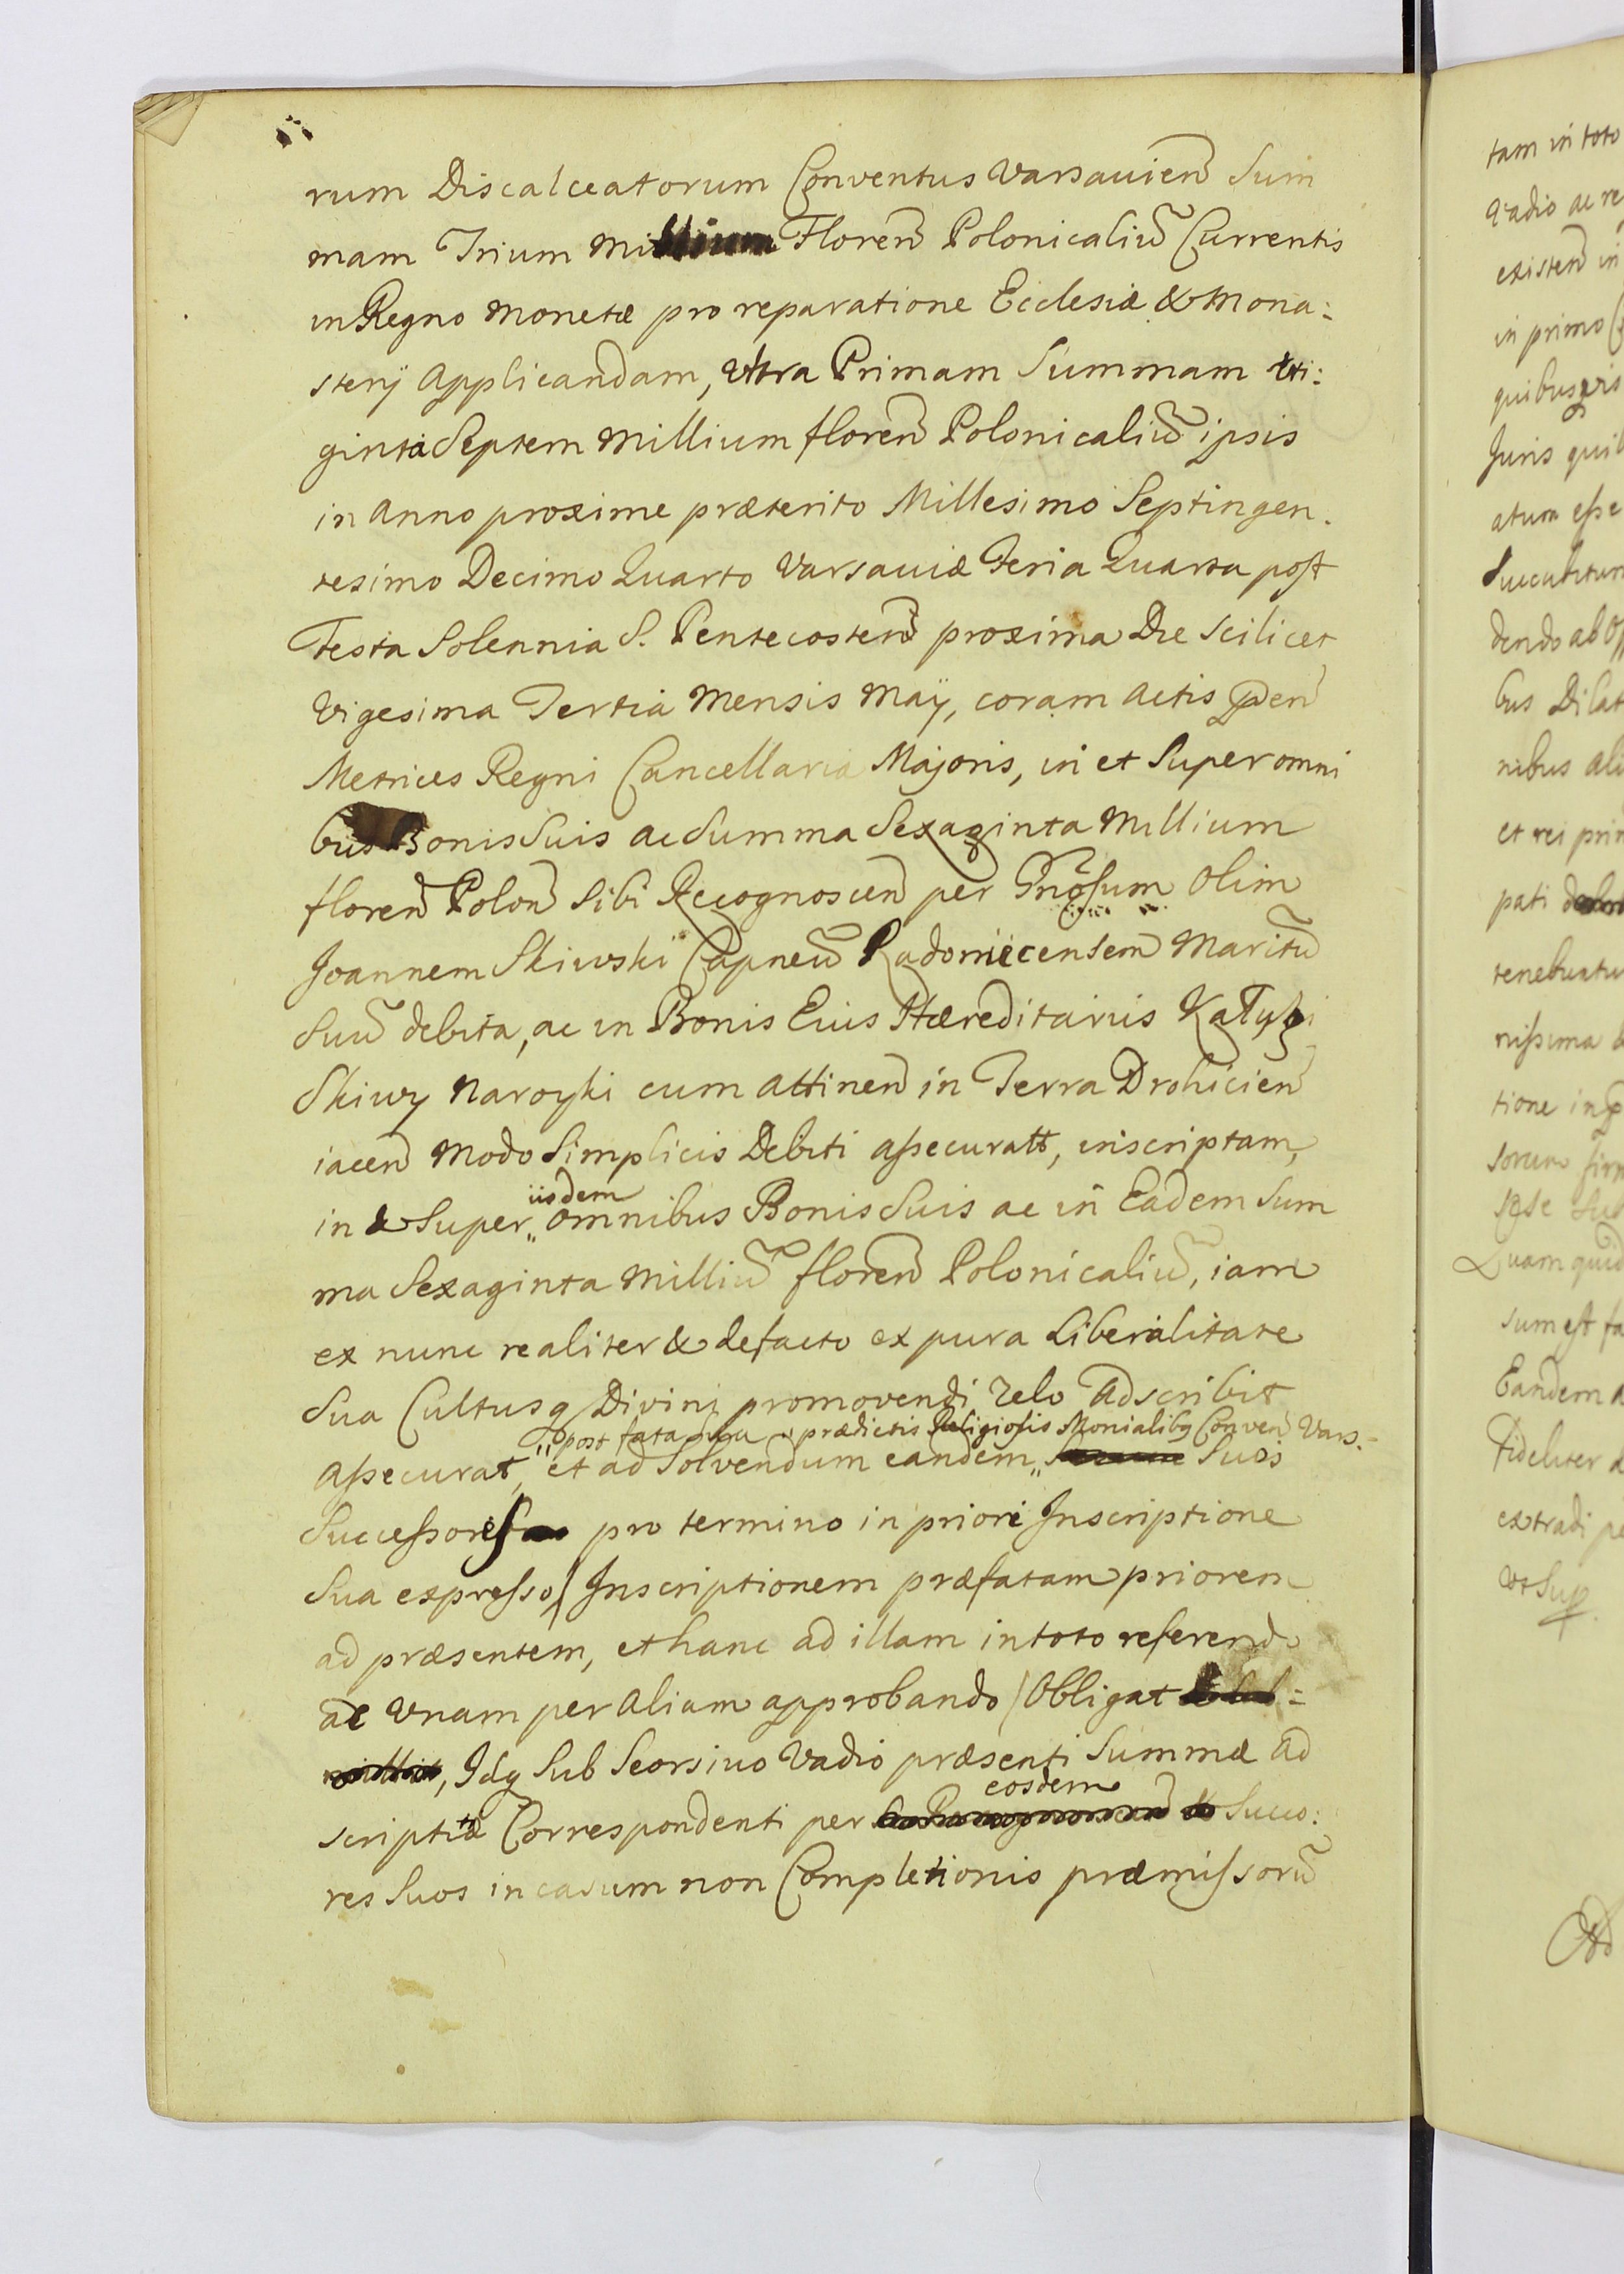 rum Discalceatorum Conventus Varsavien Sum
mam Trium Millium Floren Polonicaliu Currentis
in Regno Monetæ pro reparatione Ecclesiæ & Mona:
sterÿ Applicandam, Vltra Primam Summam tri:
ginta Septem Millium floren Polonicaliu ipsis
in Anno proxime præterito Millesimo Septingen.
tesimo Decimo Quarto Varsaviæ Feria Quarta post
Festa Solennia S. Pentecosten proxima Die scilicet
Vigesima Tertia Mensis Maÿ, coram Actis
Metrices Regni Cancellaria Majoris, in et Super omni
bus Bonis Suis ac Summa Sexaginta Millium
floren Polon Sibi Recognoscen per Gnosum Olim
Joannem Skiwski Capneu Radomiecensem Maritu
Suu debita, ac in Bonis Eius Hæreditariis
Skiwy Naroyki cum Attinen in Terra Drohicien
iacen Modo Simplicis Debiti assecuratt, inscriptam,
iisdem
in & Super omnibus Bonis Suis ac in Eadem Sum
ma Sexaginta Milliu floren Polonicaliu, iam
ex nunc realiter & defacto ex pura Liberalitate
Sua Cultusq Divini promovendi zelo Adscribit
post fata sua prædictis Religiosis Monialibq Conven Vars.
Assecurat, et ad Solvendum eandem Suos
Successores pro termino in priori Inscriptione
Sua expresso/ Inscriptionem præfatam priorem
ad præsentem, et hanc ad illam in toto referendo
ac Vnam per Aliam approbando/ Obligat
Idq Sub Seorsivo Vadio præsenti Summæ Ad
eosdem
scriptæ Correspondenti per Succo:
res Suos in casum non Completionis præmissoru
tam in toto
Vadio ac re
existen in
in primo
Juris quib
atum esse
Succubitur
dendo ab
bus Dilat
nibus ali
et rei prin
pati
tenebuntu
nissima
tione in
Quam quid
sum est fa
Eandem
Fideliter
extradi pe